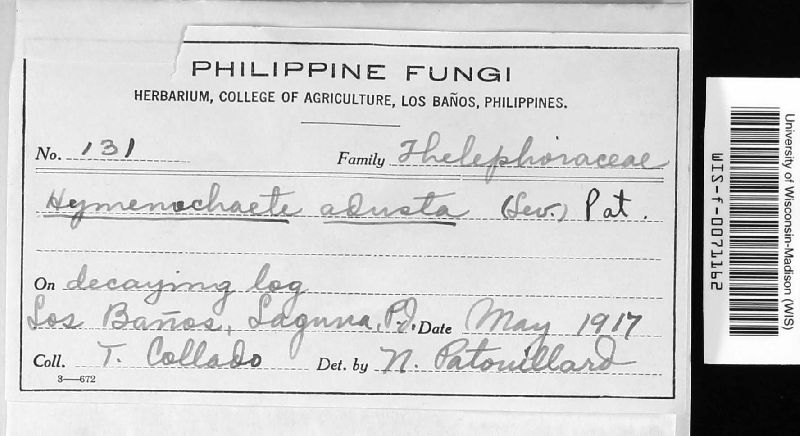 PHILIPPINE FUNGI
HERBARIUM, COLLEGE OF AGRICULTURE, LOS BAÑOS, PHILIPPINES.
No. 131 Family Thelephoraceae
Hymenochaete adusta (Lev.) Pat.
On decaying log
Los Baños, Laguna, P.I. Date May 1917
Coll. T. Collado Det. by N. Patouillard
3—672
University of Wisconsin-Madison (WIS)
WIS-f-0071162